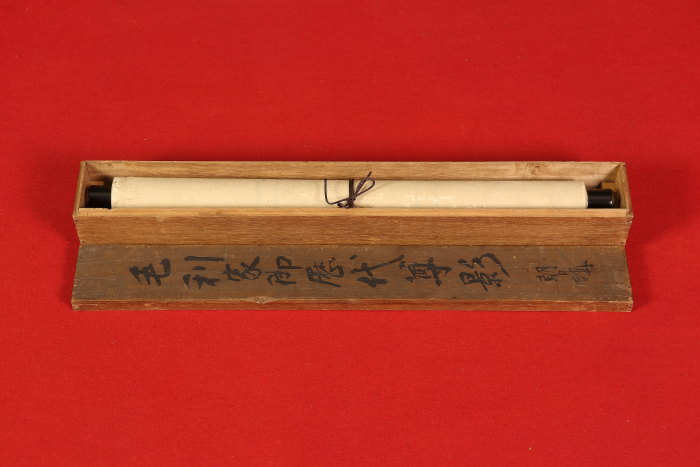 毛利家御歴代尊影